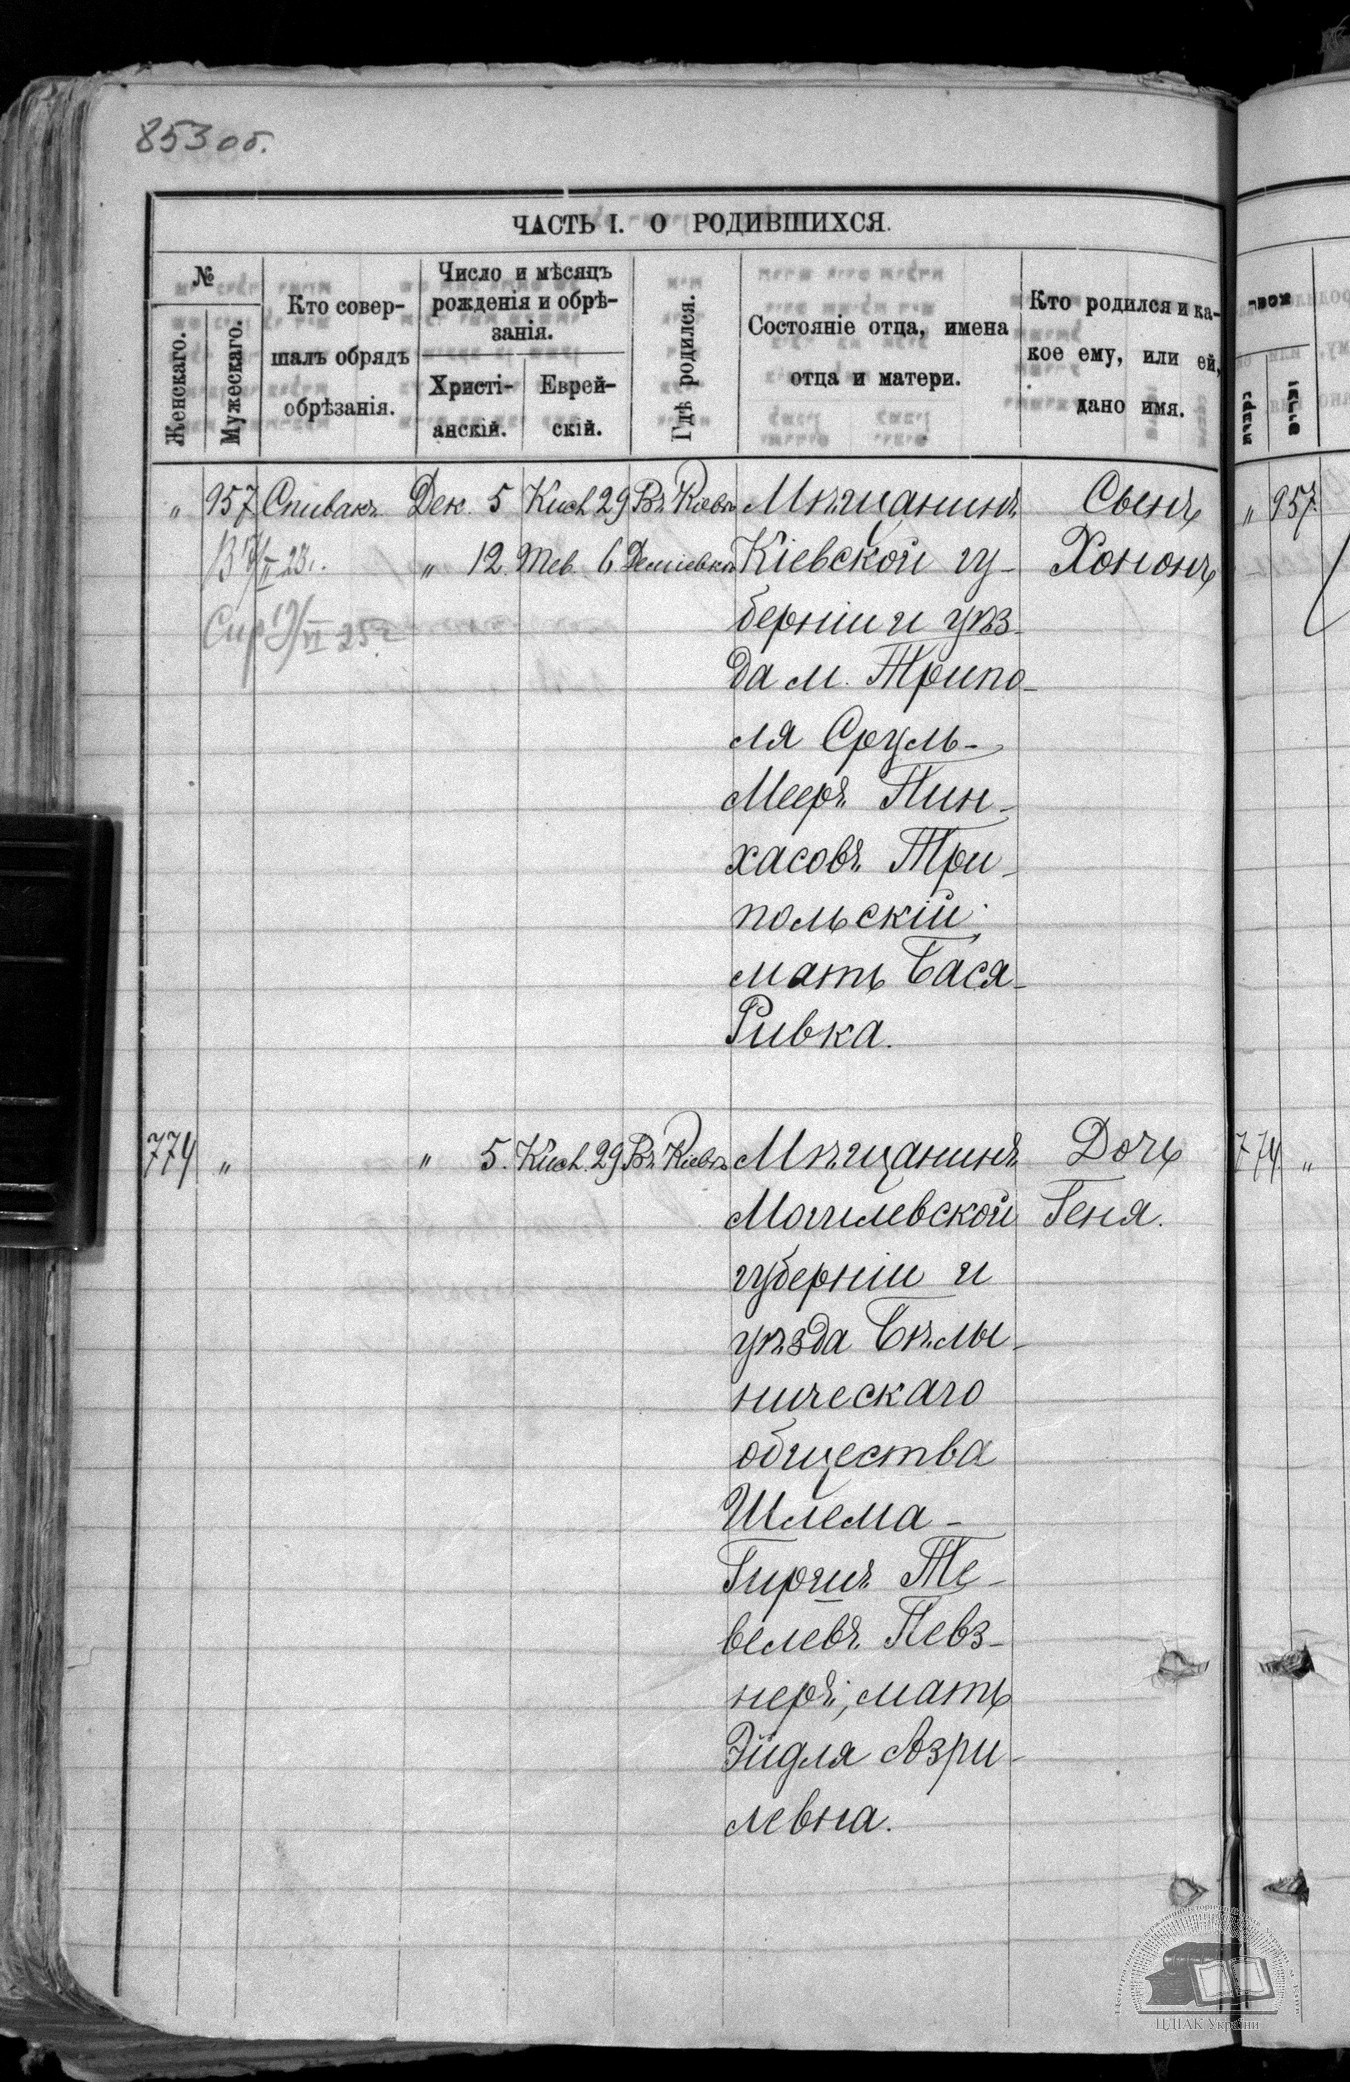 853 об.
ЧАСТЬ I. О РОДИВШИХСЯ.
№
Женскаго.
Мужескаго.
Кто совер-
шалъ обрядъ
обрѣзанія.
Число и мѣсяцъ
рожденія и обрѣ-
занія.
Христі-
анскій.
Еврей-
скій.
Гдѣ родился.
Состояніе отца, имена
отца и матери.
Кто родился и ка-
кое ему, или ей,
дано имя.
נקבות
זכרים
„ 957 Спивакъ Дек. 5 Кисл. 29 Въ Кіевѣ Мѣщанинъ Сынъ „ 957.
„ 12. Тев. 6 Деміевка Кіевской гу- Хононъ
берніи и уѣз-
да м. Трипо-
ля Сруль-
Мееръ Пин-
хасовъ Три-
польскій;
мать Бася-
Ривка.
774 „ „ 5. Кисл. 29 Въ Кіевѣ Мѣщанинъ Дочь 774 „
Могилевской Геня.
губерніи и
уѣзда Бѣлы-
ническаго
общества
Шлема-
Гиршъ Те-
велевъ Певз-
неръ; мать
Эйдля Азри-
левна.
ЦДІАК України